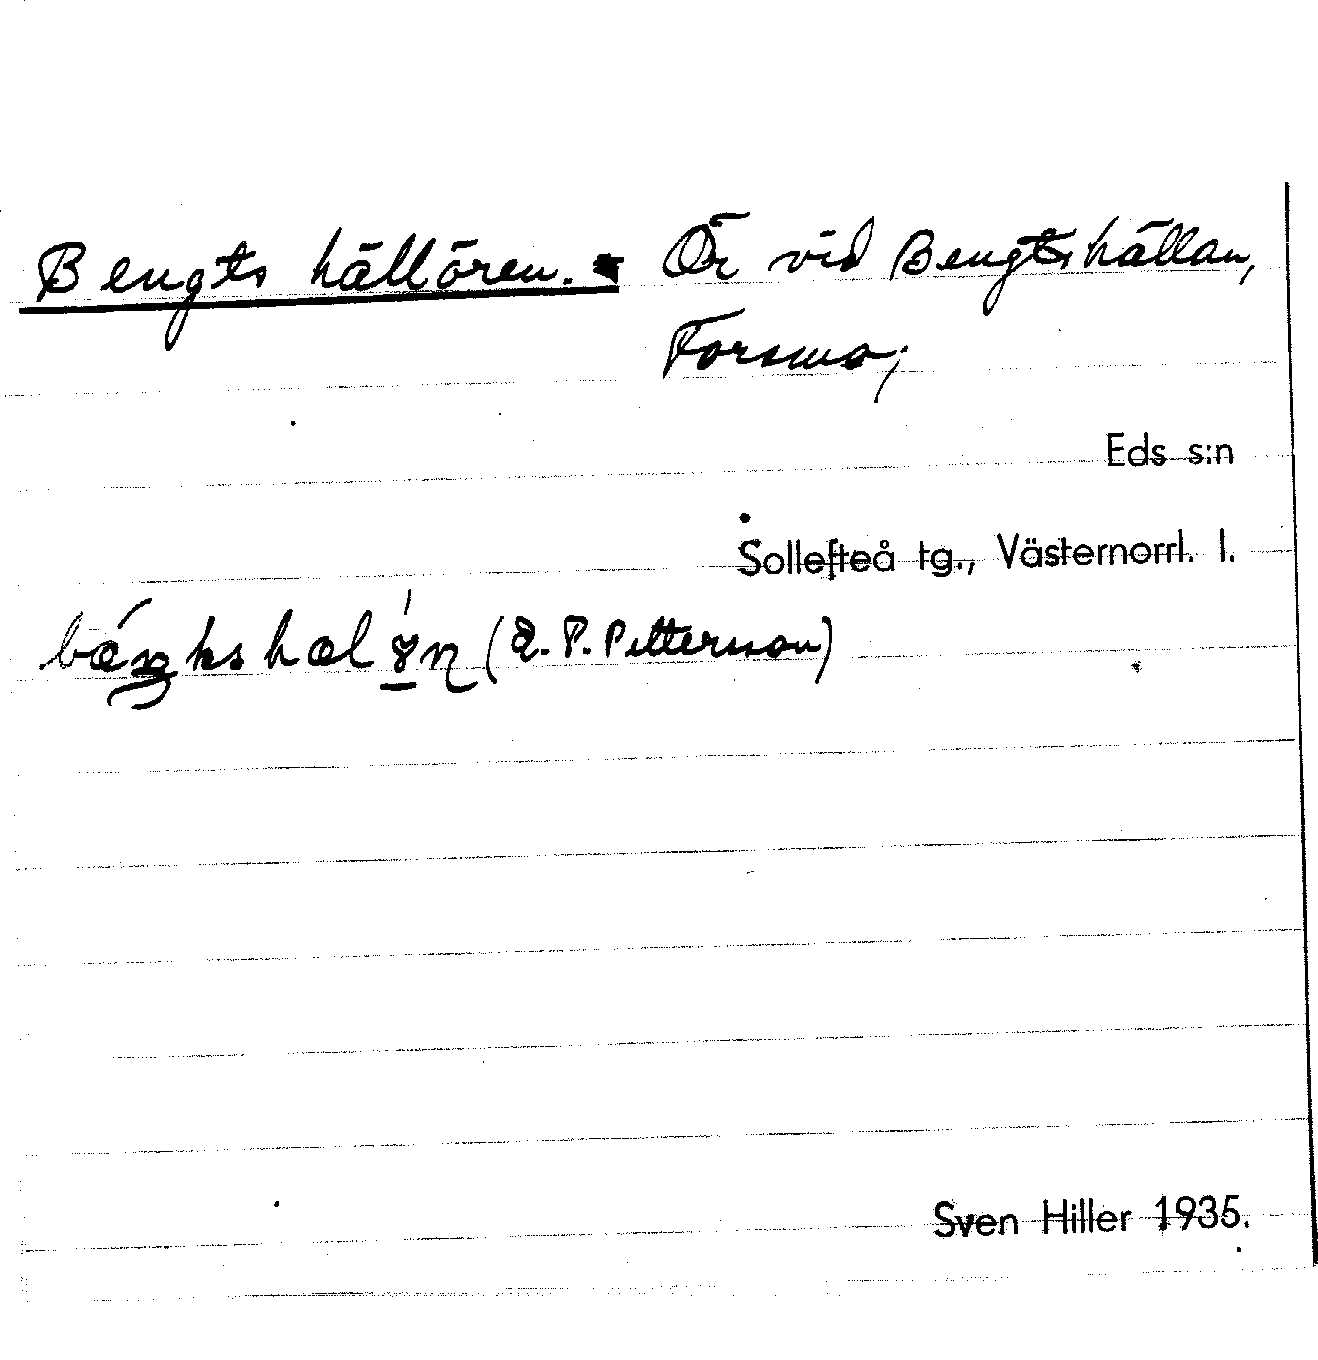 Bengts hällören. Ör vid Bengtshällan,
Forsmo;
Eds s:n
Sollefteå tg., Västernorrl. l.
(E. P. Pettersson)
Sven Hiller 1935.